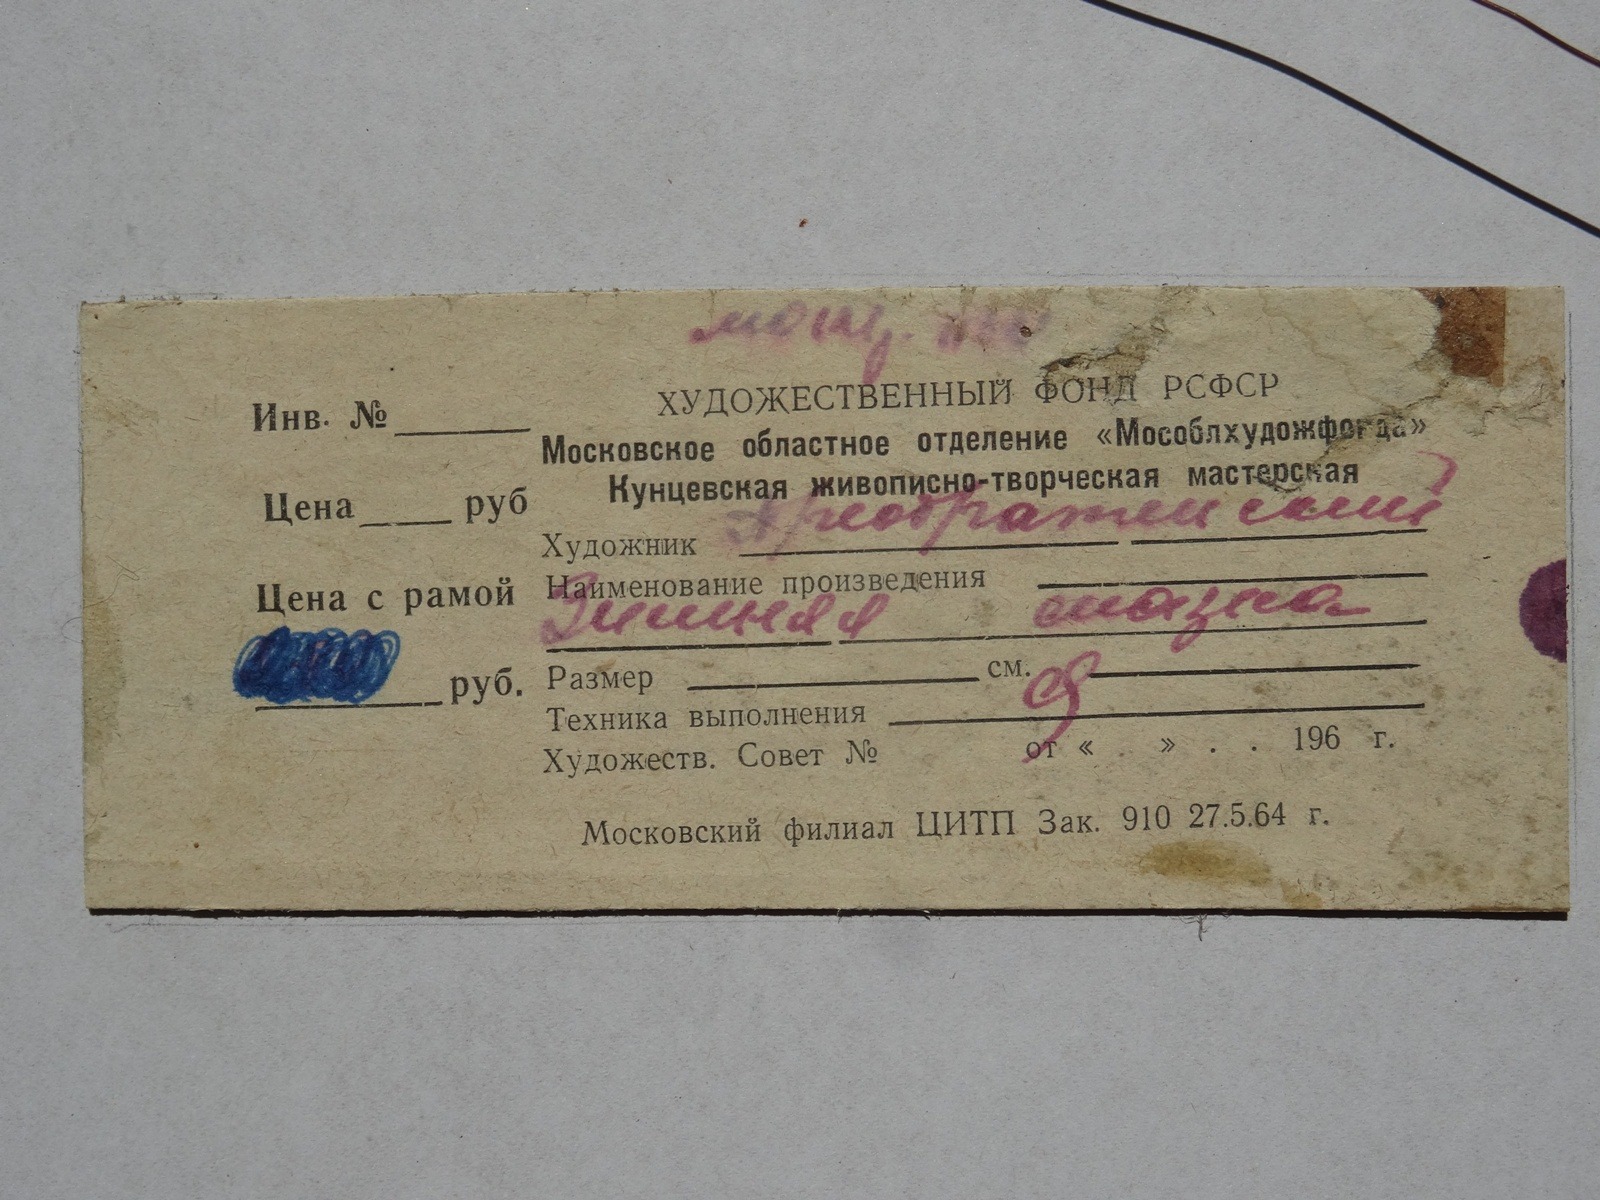 Инв. № ______
Цена ____ руб
Цена с рамой
______ руб.
ХУДОЖЕСТВЕННЫЙ ФОНД РСФСР
Московское областное отделение «Мособлхудожфонда»
Кунцевская живописно-творческая мастерская
Художник Преображенский
Наименование произведения
Зимняя сказка
Размер ______ см.
Техника выполнения
Художеств. Совет № от « » . . 196 г.
Московский филиал ЦИТП Зак. 910 27.5.64 г.